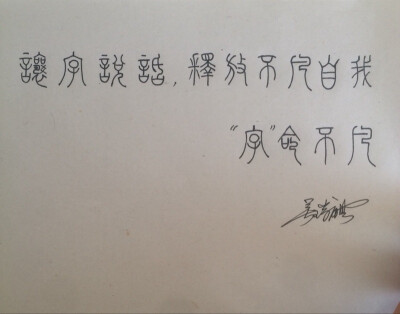 讓字說話，釋放不凡自我
“字”命不凡